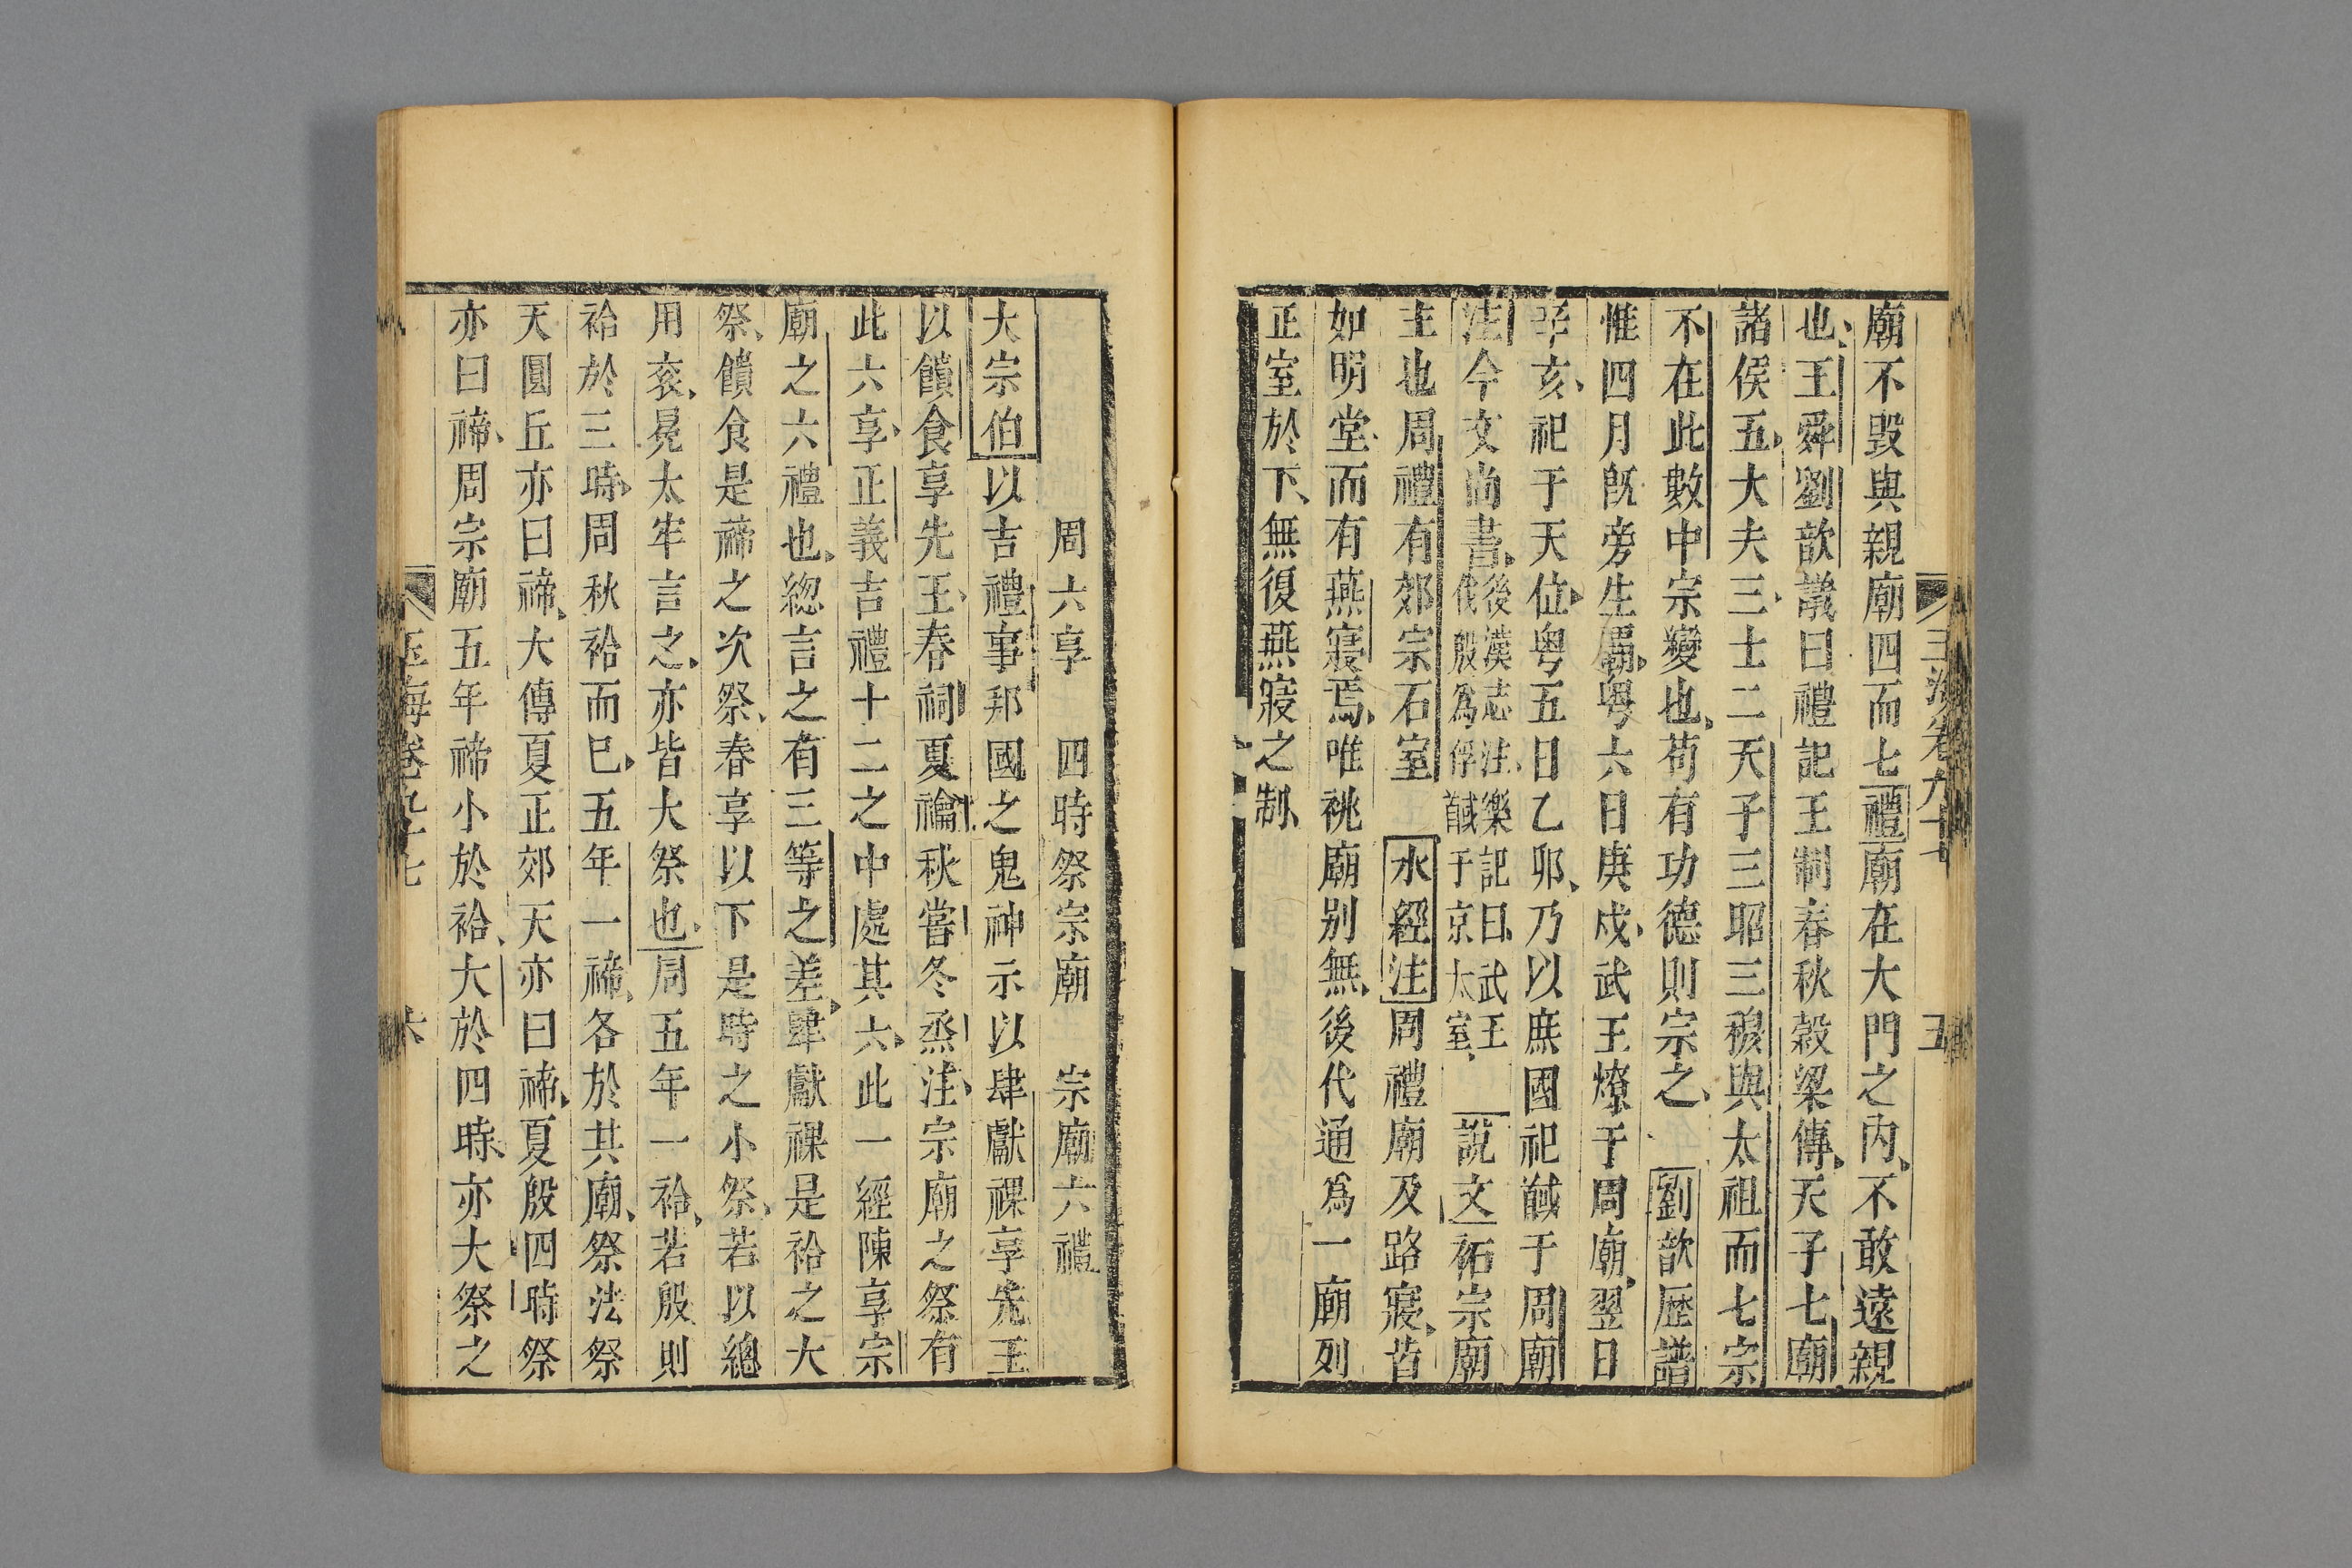 廟不毀與親廟四而七禮廟在大門之內不敢遠親
也王舜劉歆議曰禮記王制春秋穀梁傳天子七廟
諸侯五大夫三士二天子三昭三穆與太祖而七宗
不在此數中宗變也苟有功德則宗之 劉歆歷譜
惟四月旣旁生霸粤六日庚戍武王燎于周廟翌日
辛亥祀于天位粤五日乙卯乃以庶國祀馘于周廟
注今文尚書後漢志注樂記曰武王
伐殷爲俘馘于京太室 說文祏宗廟
主也周禮有郊宗石室 水經注周禮廟及路寢昔
如明堂而有燕寢焉唯祧廟别無後代通爲一廟列
正室於下無復燕寢之制
玉海卷九十七 五
周六享 四時祭宗廟 宗廟六禮
大宗伯以吉禮事邦國之鬼神示以肆獻祼享先王
以饋食享先王春祠夏禴秋嘗冬烝注宗廟之祭有
此六享正義吉禮十二之中處其六此一經陳享宗
廟之六禮也緫言之有三等之差肆獻祼是祫之大
祭饋食是禘之次祭春享以下是時之小祭若以總
用衮冕太牢言之亦皆大祭也周五年一祫若殷則
祫於三時周秋祫而巳五年一禘各於其廟祭法祭
天圜丘亦曰禘大傳夏正郊天亦曰禘夏殷四時祭
亦曰禘周宗廟五年禘小於祫大於四時亦大祭之
玉海卷九十七 六